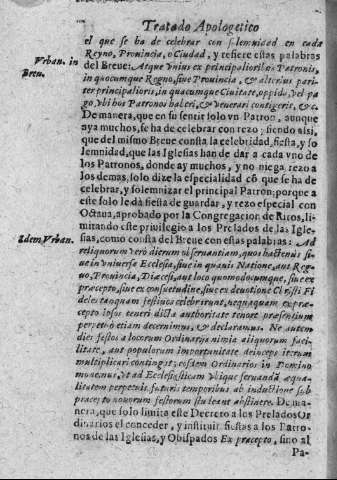 Tratado Apologetico
el que se ha de celebrar con solemnidad en cada
Reyno, Prouincia, o Ciudad, y refiere estas palabras
Vrban. in
Breu.
del Breue: Atque vnius ex principalioribus Patronis,
in quocumque Regno, siue Prouincia, & alterius pari-
ter principalioris, in quacumque Ciuitate, oppido, vel pa-
go, vbi hos Patronos haberi, & venerari contigerit, &c.
De manera, que en su sentir solo vn Patron, aunque
aya muchos, se ha de celebrar con rezo; siendo assi,
que del mismo Breue consta la celebridad, fiesta, y so
lemnidad, que las Iglesias han de dar a cada vno de
los Patronos, donde ay muchos, y no niega rezo a
los demas, solo dize la especialidad cō que se ha de
celebrar, y solemnizar el principal Patron; porque a
este solo le dà fiesta de guardar, y rezo especial con
Octaua, aprobado por la Congregacion de Ritos, li-
mitando este priuilegio a los Prelados de las Igle-
Idem Vrban.
sias, como consta del Breue con estas palabras: Ad
reliquorum verò dierum observantiam, quos hactenus si-
ue in vniuersa Ecclesia, siue in quauis Natione, aut Reg-
no, Prouincia, Diœcesi, aut loco quomodocumque, siue ex
præcepto, siue ex consuetudine, siue ex deuotione Christi Fi
deles tanquam festiuos celebrarunt, nequaquam ex præ-
cepto ipsos teneri dicta authoritate tenore præsentium
perpetuò etiam decernimus, & declaramus. Ne autem
dies festos a locorum Ordinarijs nimia aliquorum faci-
litate, aut populorum importunitate deinceps iterum
multiplicari contingat; eosdem Ordinarios in Domino
monemus, vt ad Ecclesiasticam vbique seruandā æqua-
litatem perpetuis futuris temporibus ab inductione sub
præcepto nouorum festorum studeant abstinere. De ma-
nera, que solo limita este Decreto a los Prelados Or
dinarios el conceder, y instituir fiestas a los Patro-
nos de las Iglesias, y Obispados Ex præcepto, sino al
Pa-